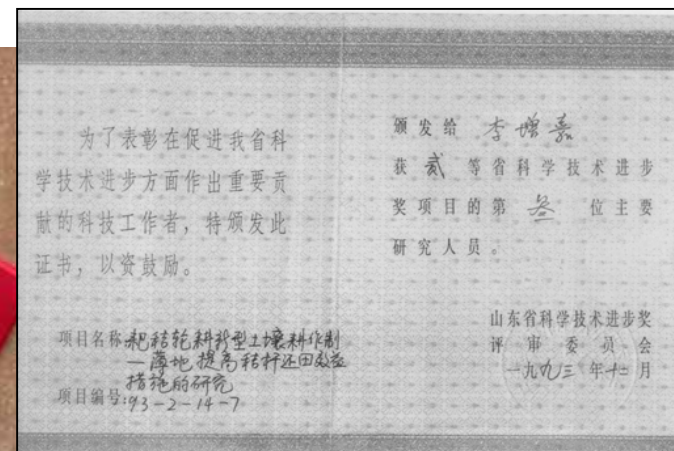 为了表彰在促进我省科
学技术进步方面作出重要贡
献的科技工作者，特颁发此
证书，以资鼓励。
项目名称:耙秸轮耕新型土壤耕作制
—薄地提高秸杆还田效益
措施的研究
项目编号:93-2-14-7
颁发给 李增嘉
获 贰 等省科学技术进步
奖项目的第 叁 位主要
研究人员。
山东省科学技术进步奖
评审委员会
一九九三年十二月